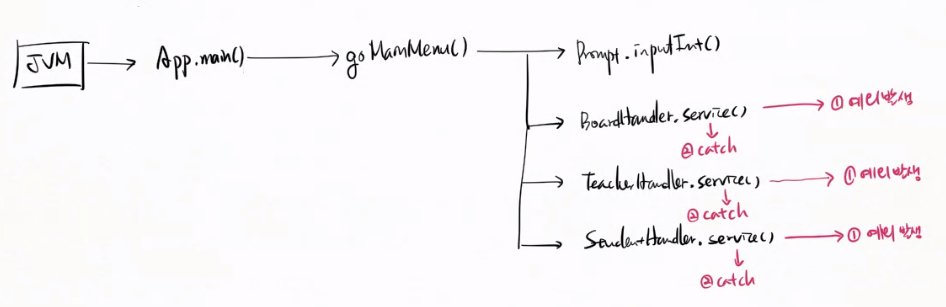 JVM
App.main()
goMainMenu()
Prompt.inputInt()
BoardHandler.service()
① 에러 발생
② catch
TeacherHandler.service()
① 에러 발생
② catch
StudentHandler.service()
① 에러 발생
② catch